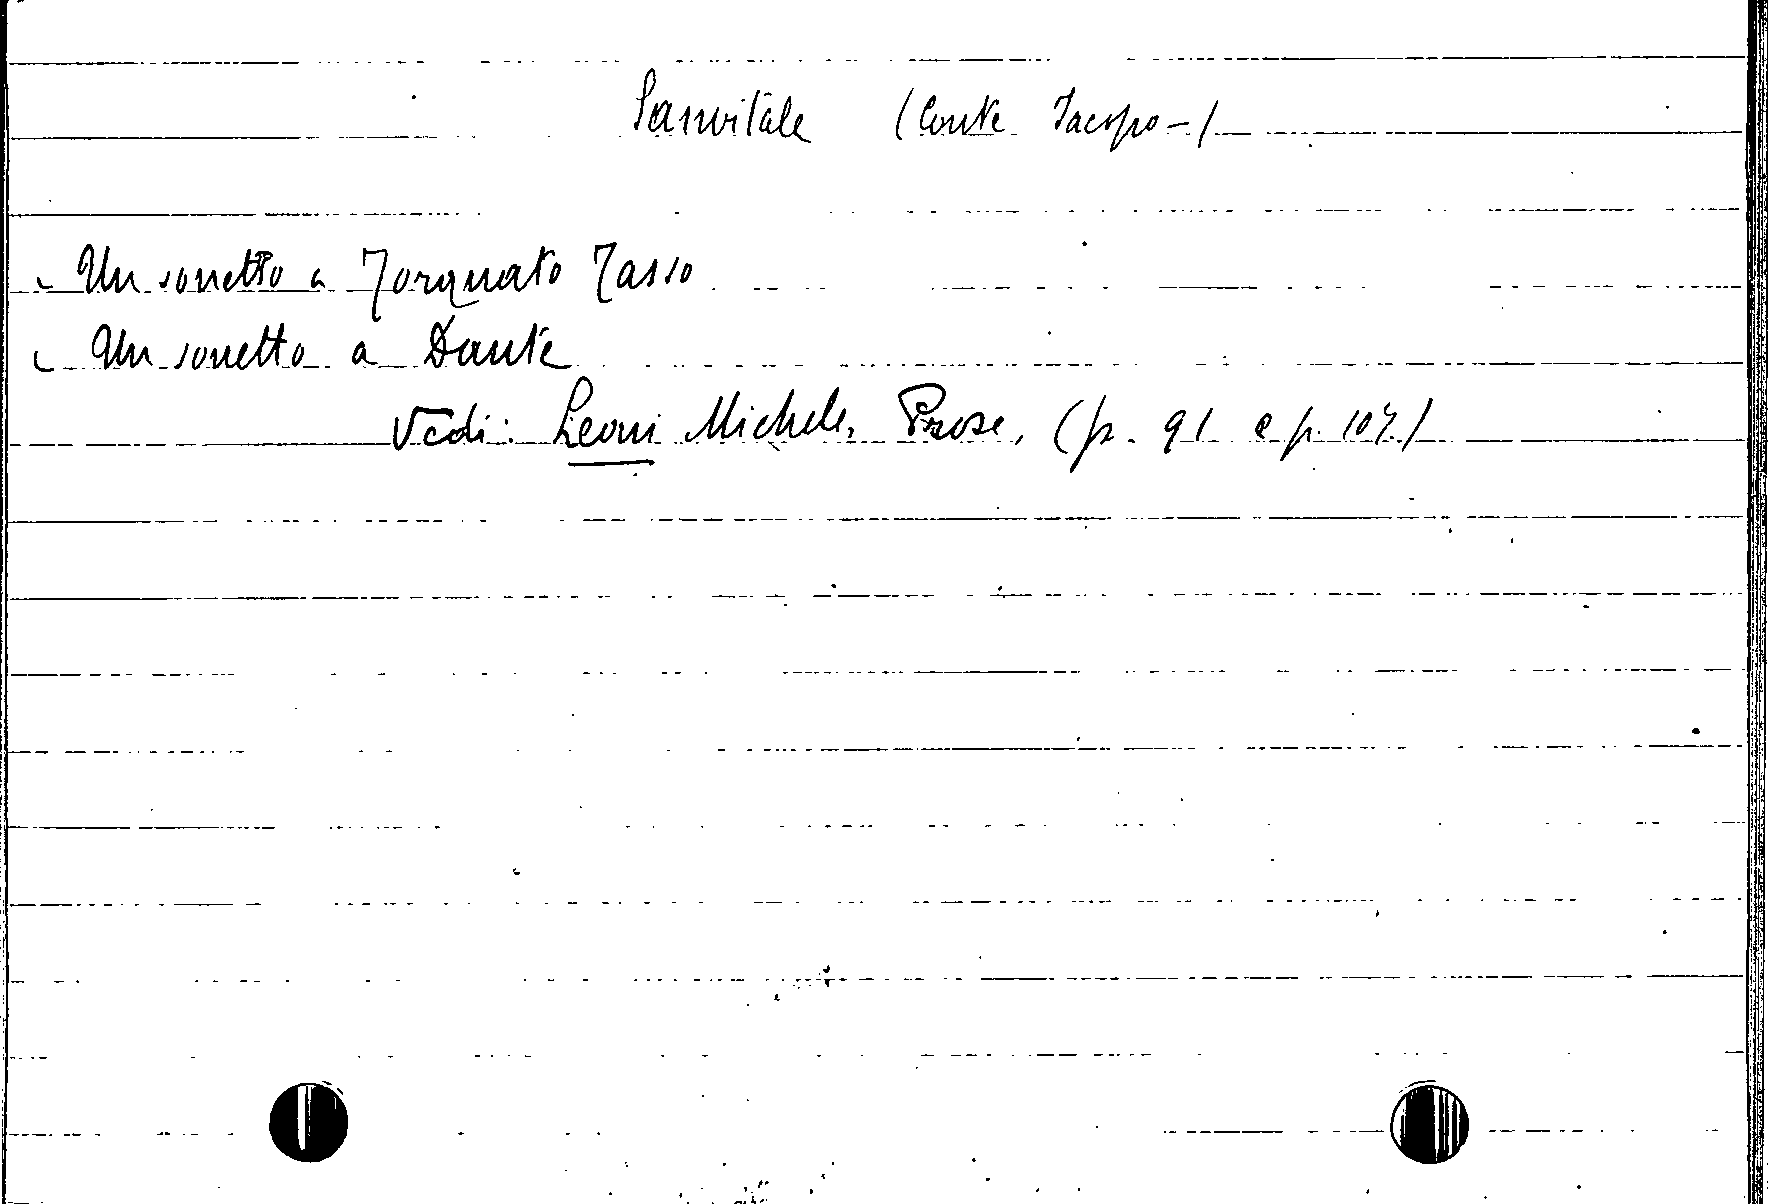 Sanvitale (Conte Jacopo-)
Un sonetto a Torquato Tasso
Un sonetto a Dante
Vedi: Leoni Michele, Prose, (p. 91 e p. 107)